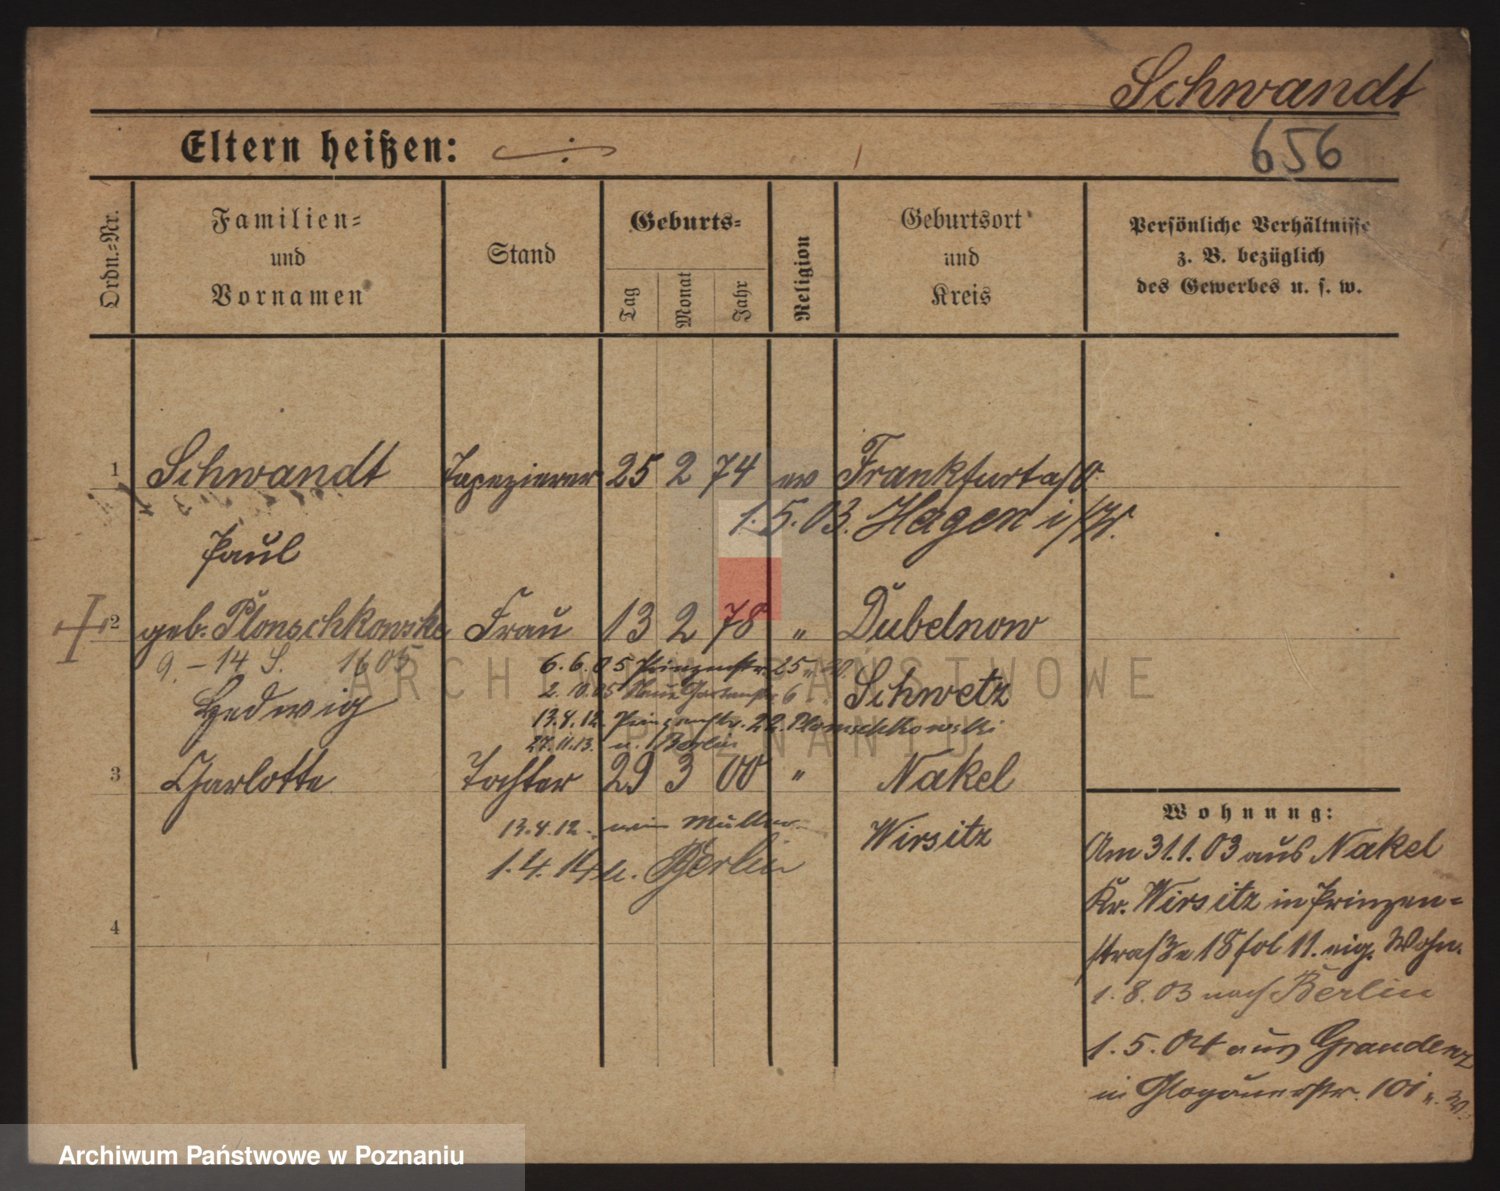 Schwandt
656
Eltern heißen: ·/.
Ordn.-Nr.
Familien-
und
Vornamen
Stand
Geburts-
Tag
Monat
Jahr
Religion
Geburtsort
und
Kreis
Persönliche Verhältnisse
z. B. bezüglich
des Gewerbes u. s. w.
1 Schwandt Tapezierer 25 2 74 ev Frankfurt a/O.
1.5.03. Hagen i/W.
Paul
2 geb. Plonschkowske Frau 13 2 78 " Dubelnow
9. - 14 S. 1605
6.6.05 Prinzenstr. 25
Hedwig
2.10.05 Gartenstr. 6
Schwetz
13.4.12. Prinzenstr. 22. Plonschkowski
27.11.13. n. Berlin
3 Charlotte Tochter 29 3 00 " Nakel
13.4.12.
Wirsitz
1.4.14 n. Berlin
4
Wohnung:
Am 31.1.03 aus Nakel
Kr. Wirsitz in Prinzen-
straße 18 fol 11. eig. Wohn.
1.8.03 nach Berlin
1.5.04 aus Graudenz
in Glogauerstr. 101
ARCHIWUM PAŃSTWOWE
W POZNANIU
Archiwum Państwowe w Poznaniu